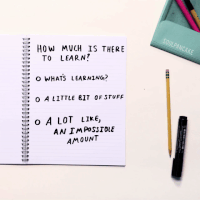 HOW MUCH IS THERE
TO LEARN?
WHAT'S LEARNING?
A LITTLE BIT OF STUFF
A LOT LIKE,
AN IMPOSSIBLE
AMOUNT